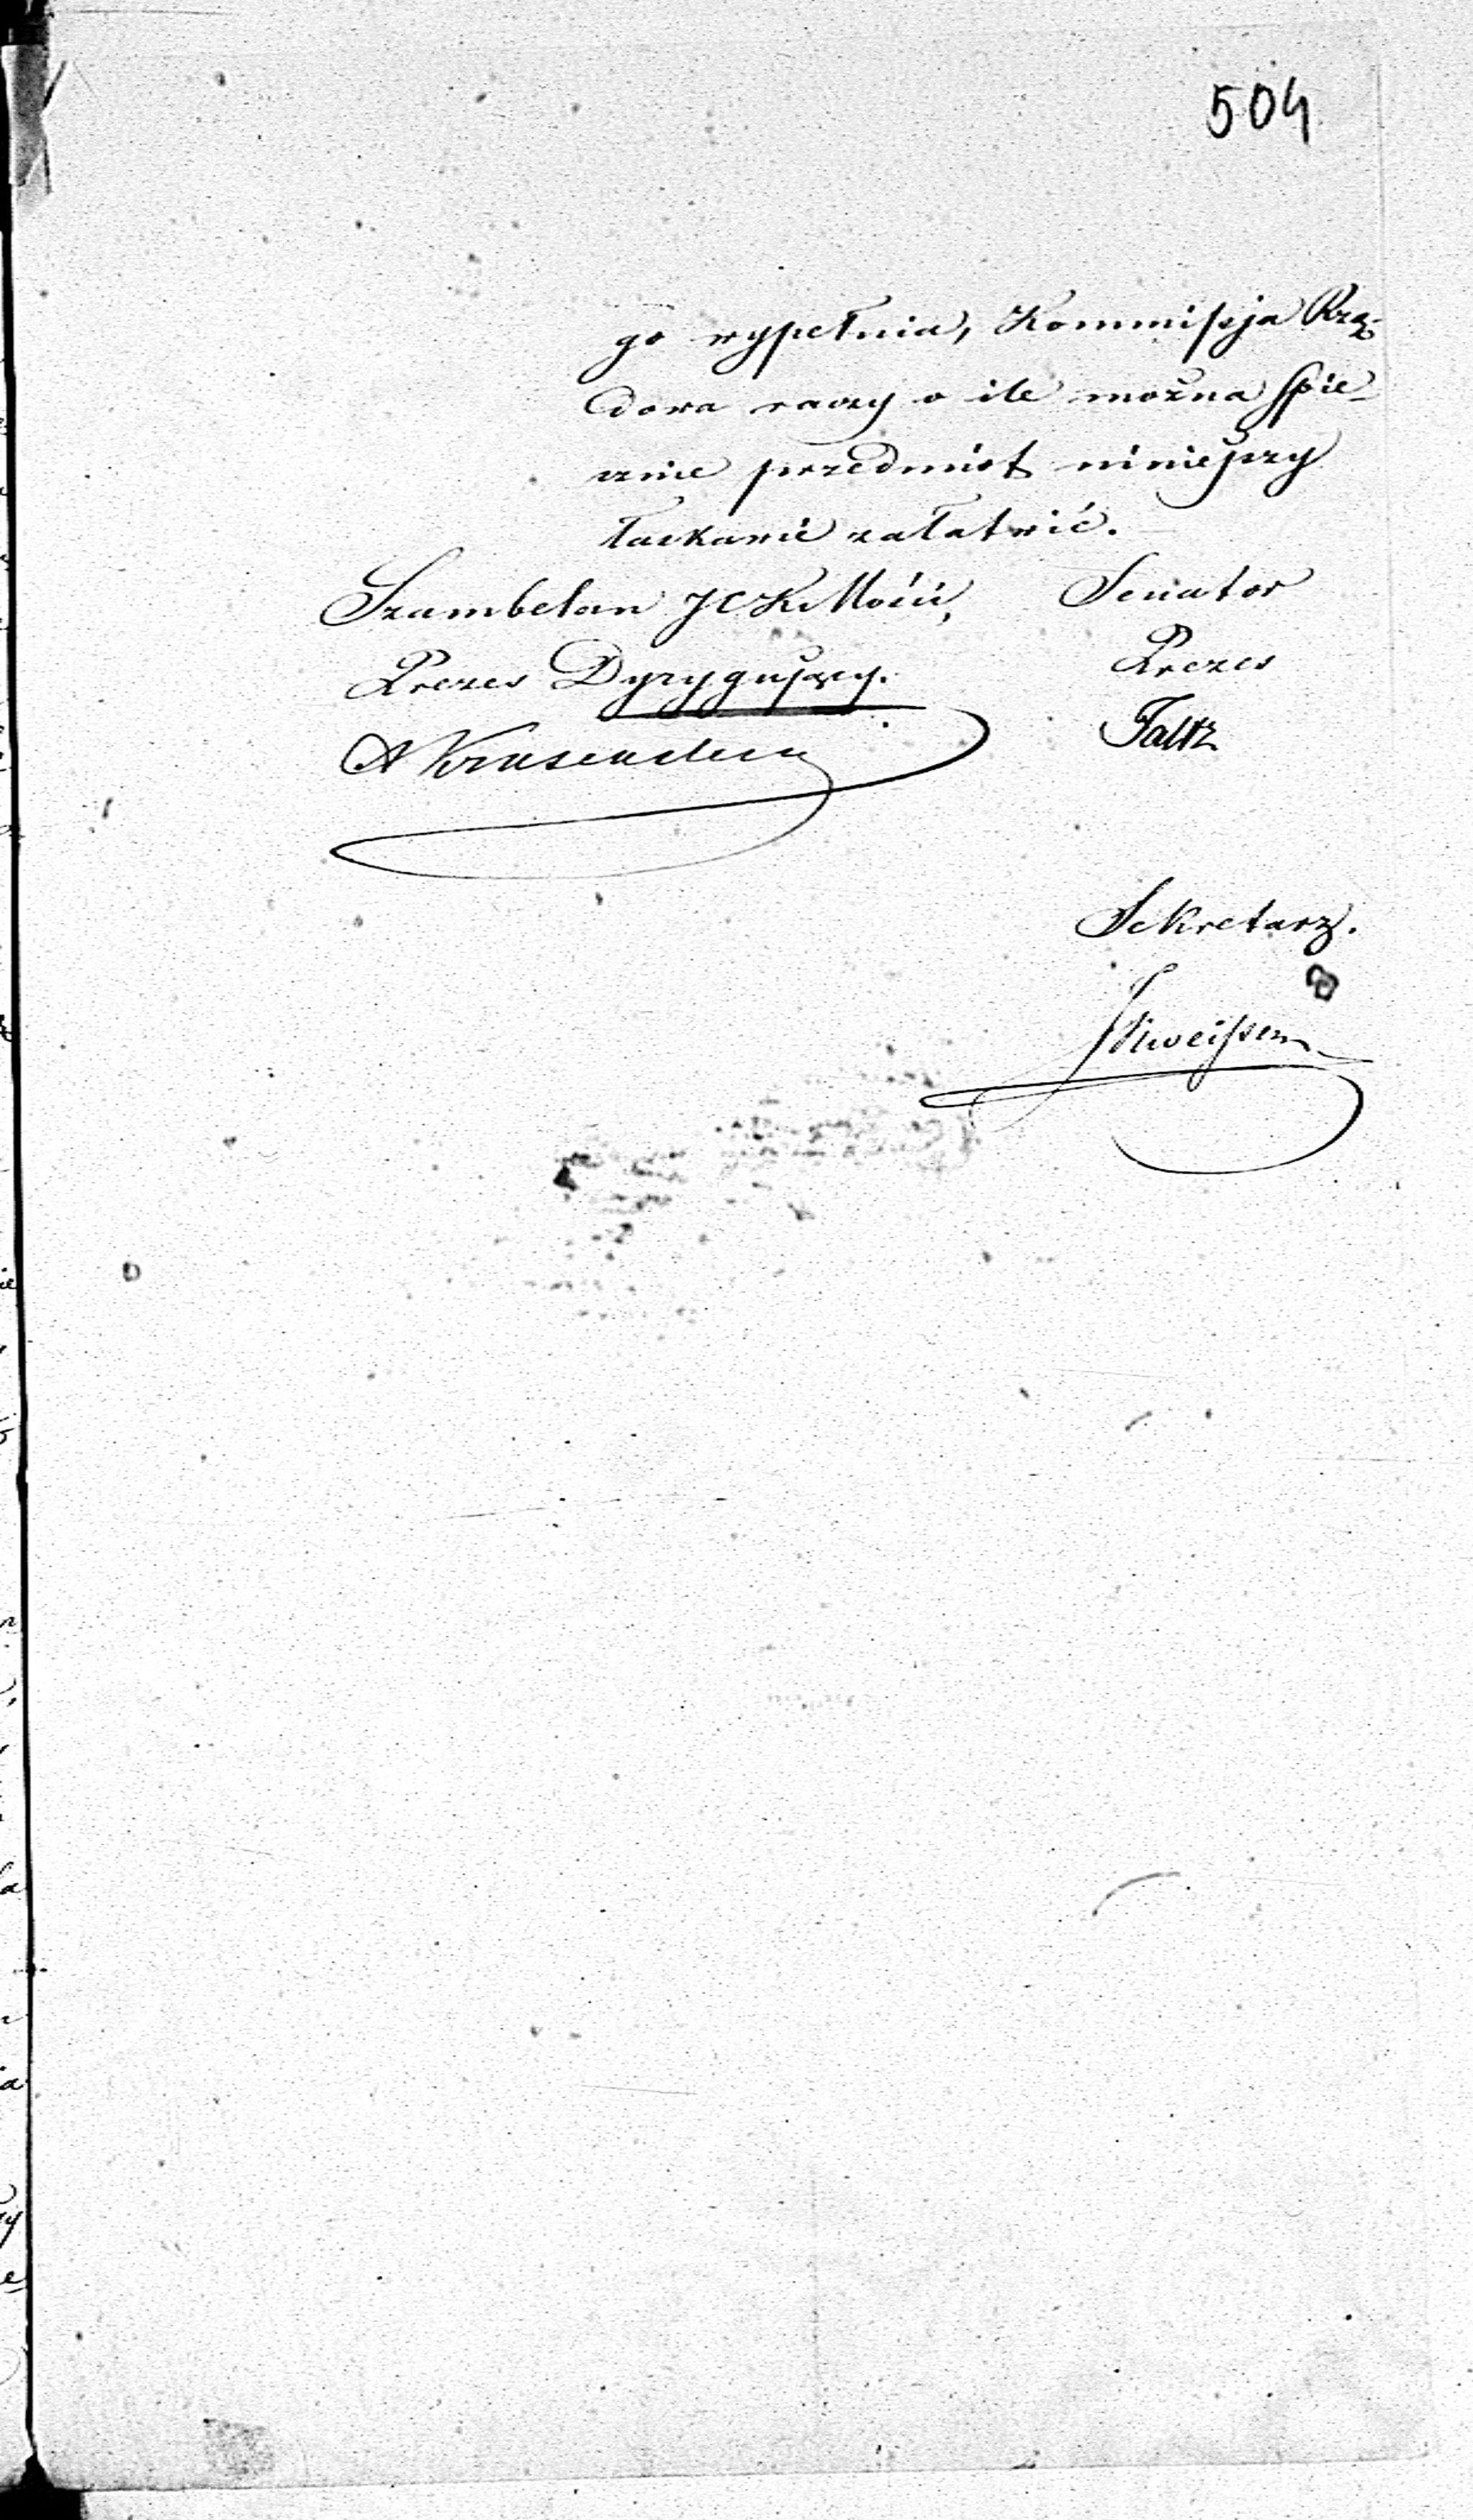 504
go wypełnia, Kommissja Rzą-
dowa raczy o ile można spie-
sznie przedmiot niniejszy
łaskawie załatwić.
Szambelan JCKMości, Senator
Prezes Dyrygujący. Prezes
A Krusenstern Faltz
Sekretarz.